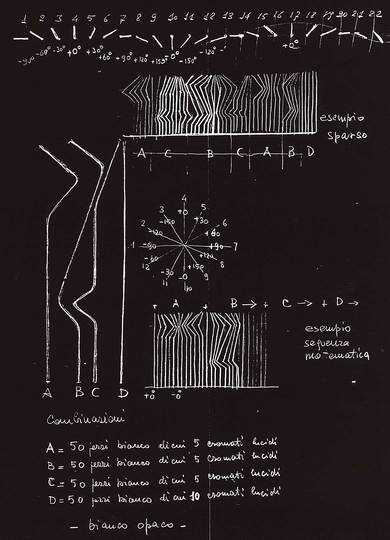 1 2 3 4 5 6 7 8 9 10 11 12 13 14 15 16 17 18 19 20 21 22
-90° -60° -30° +0° +30° +60° +90° +120 +150 +0° -150° -120° +0°
esempio
sparso
A C B C A B D
4
3 +0 5
2 6
-120 +60
1 -90 +90 7
12 8
-60 +120
11 -30 +150 9
-0
10
+ A + B → + C → + D →
esempio
sequenza
matematica
A B C D +0° -0°
Combinazioni
A = 50 pezzi bianco di cui 5 cromati lucidi
B = 50 pezzi bianco di cui 5 cromati lucidi
C = 50 pezzi bianco di cui 5 cromati lucidi
D = 50 pezzi bianco di cui 10 cromati lucidi
- bianco opaco -